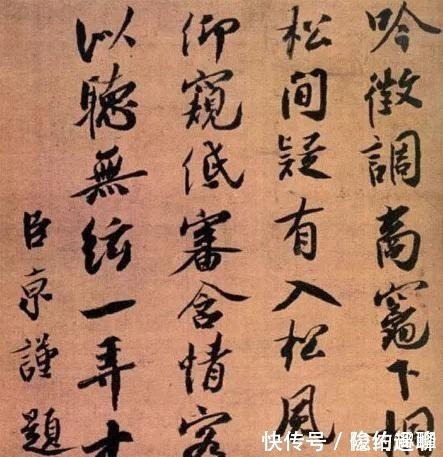 吟徵調商竈下桐
松間疑有入松風
仰窺低審含情客
以聽無絃一弄
臣京謹題
快传号 /